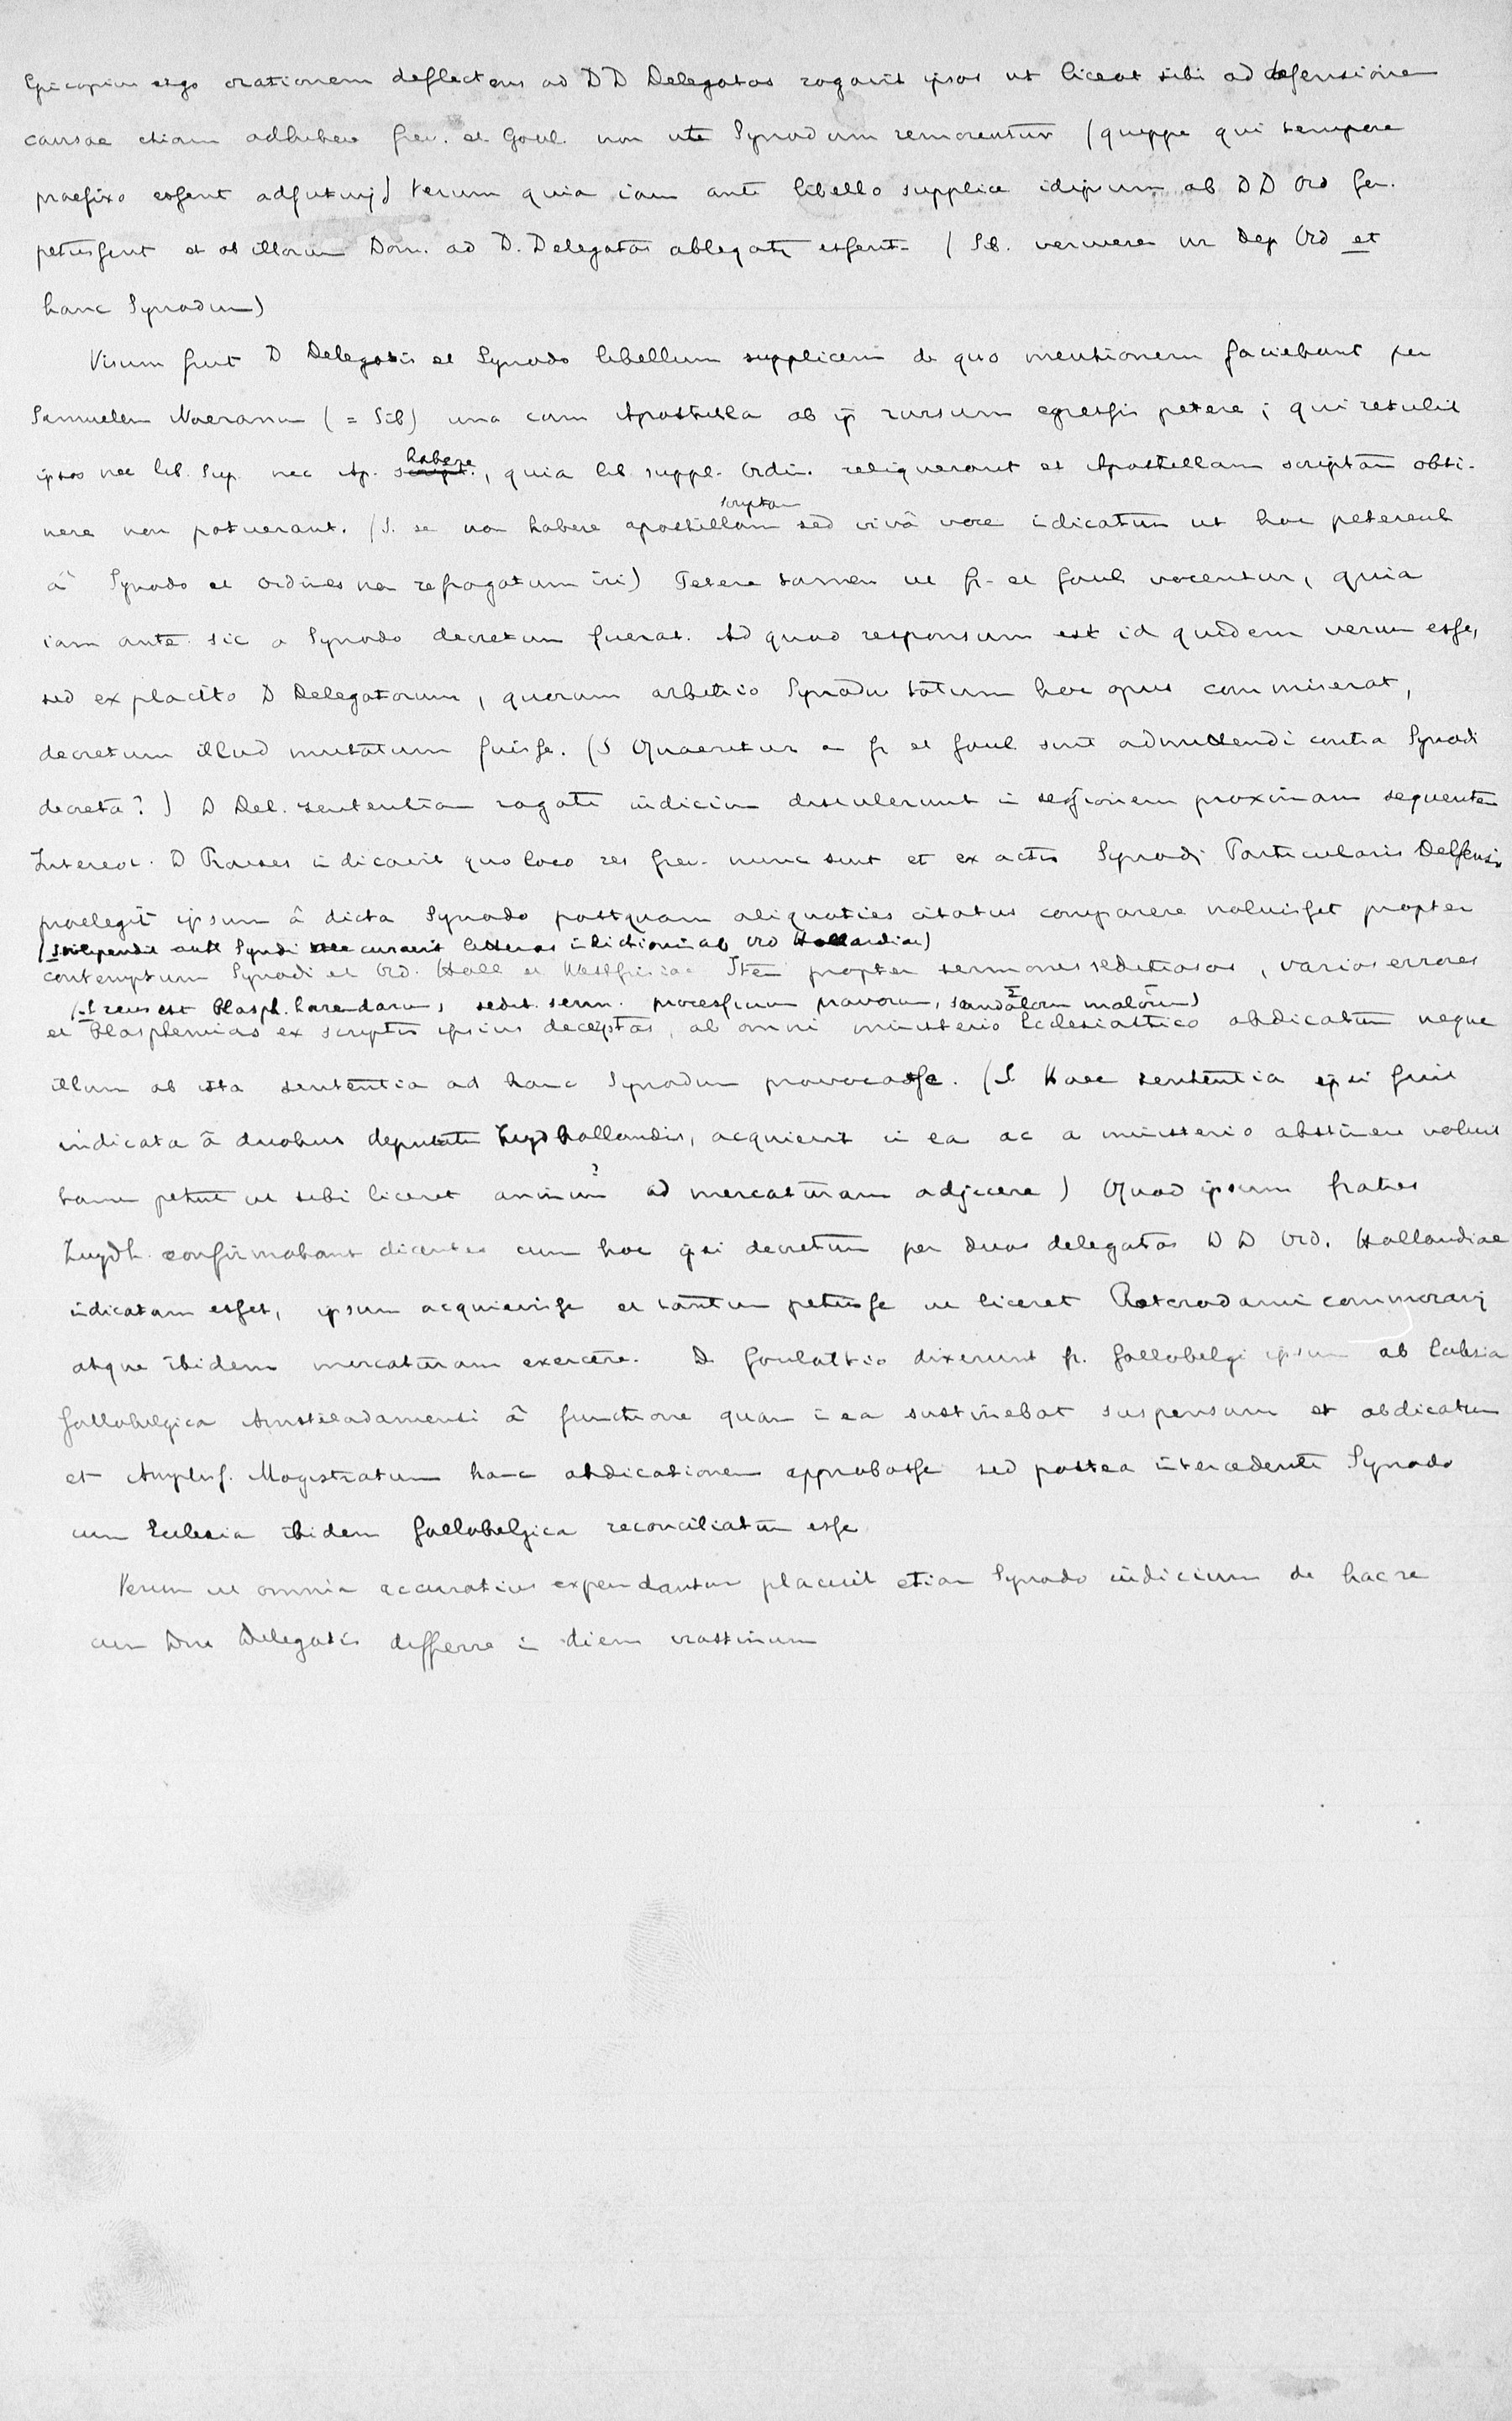 Episcopius ergo orationem deflectens ad DD Delegatos rogavit ipsos ut liceat sibi ad defensione
causae etiam adhibere Grev. et Goul. non ut Synodum remorentur (quippe qui tempore
praefixo essent adfuturj) Verum quia iam ante libello supplice idipsum ab DD Ord Gen.
petiissent et ab illorum Dom. ad D. Delegatos ablegatj essent. (Sib. Dep Ord et
hanc Synodum)
Visum fuit D Delegatis et Synodo libellum supplicem de quo mentionem faciebant per
Samuelem Naeranum (= Sib) una cum Apostilla ab ip rursum egressis petere; qui retulit
ipsos nec lib. Sup. nec Ap. script. habere, quia lib suppl. Ordin. reliquerant et Apostillam scriptam obti-
nere non potuerant. (S. se non habere apostillam scriptam sed vivâ voce indicatum ut hoc peterent
â Synodo et Ordines non refragatum iri) Petere tamen ut Gr. et Goul. vocentur, quia
iam ante sic a Synodo decretum fuerat. Ad quod responsum est id quidem verum esse,
sed ex placito D Delegatorum, quorum arbitrio Synodus totum hoc opus commiserat,
decretum illud mutatum fuisse. (S Quaeritur an Gr et Goul. sint admittendi contra Synodi
decreta?) D Del. sententiam rogati iudicium distulerunt in sessionem proximam sequentem
Interea. D Praeses indicavit quo loco res Grev. nunc sint et ex actis Synodi Particularis Delfensis
praelegit ipsum â dicta Synodo postquam aliquoties citatus comparere noluisset propter
(S vilipendit Synodi nec curavit litteras indictionis ab Ord Hollandiae)
contemptum Synodi et Ord. Holl et Westfrisiae Item propter sermones seditiosos, varios errores
(S reus est Blasph. horendarum, sedit. serm. processuum pravorum, scandalorum malorum)
et Blasphemias ex scriptis ipsius decerptas, ab omni ministerio Ecclesiastico abdicatum neque
illum ab ista sententia ad hanc Synodum provocasse. (S Haec sententia ipsi fuit
indicata â duobus deputatis Zuydhollandis, acquievit in ea ac a ministerio abstinere voluit
tamen petiit ut sibi liceret animum ? ad mercaturam adjicere) Quod ipsum fratres
Zuydh. confirmabant dicentes cum hoc ipsi decretum per duos delegatos DD Ord. Hollandiae
indicatum esset, ipsum acquievisse et tantum petiisse ut liceret Roterodami commorarj
atque ibidem mercaturam exercere. D Goulattio dixerunt fr. Gallobelgi ipsum ab Eclesia
Gallobelgica Amsteladamensi â functione quam in ea sustinebat suspensum et abdicatum
et Ampliss. Magistratum hanc abdicationem approbasse sed postea intercedente Synodo
cum Ecclesia ibidem Gallobelgica reconciliatum esse
Verum ut omnia accuratius expendantur placuit etiam Synodo iudicium de hac re
cum Dnis Delegatis differre in diem crastinum